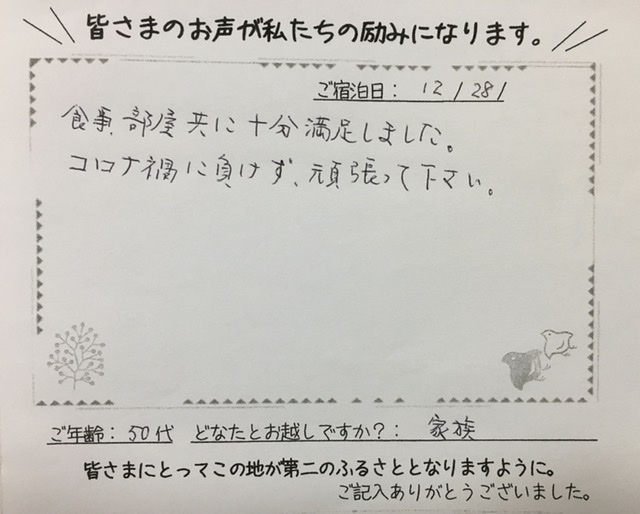 皆さまのお声が私たちの励みになります。
ご宿泊日: 12/28/
食事、部屋共に十分満足しました。
コロナ禍に負けず、頑張って下さい。
ご年齢: 50代 どなたとお越しですか?: 家族
皆さまにとってこの地が第二のふるさととなりますように。
ご記入ありがとうございました。